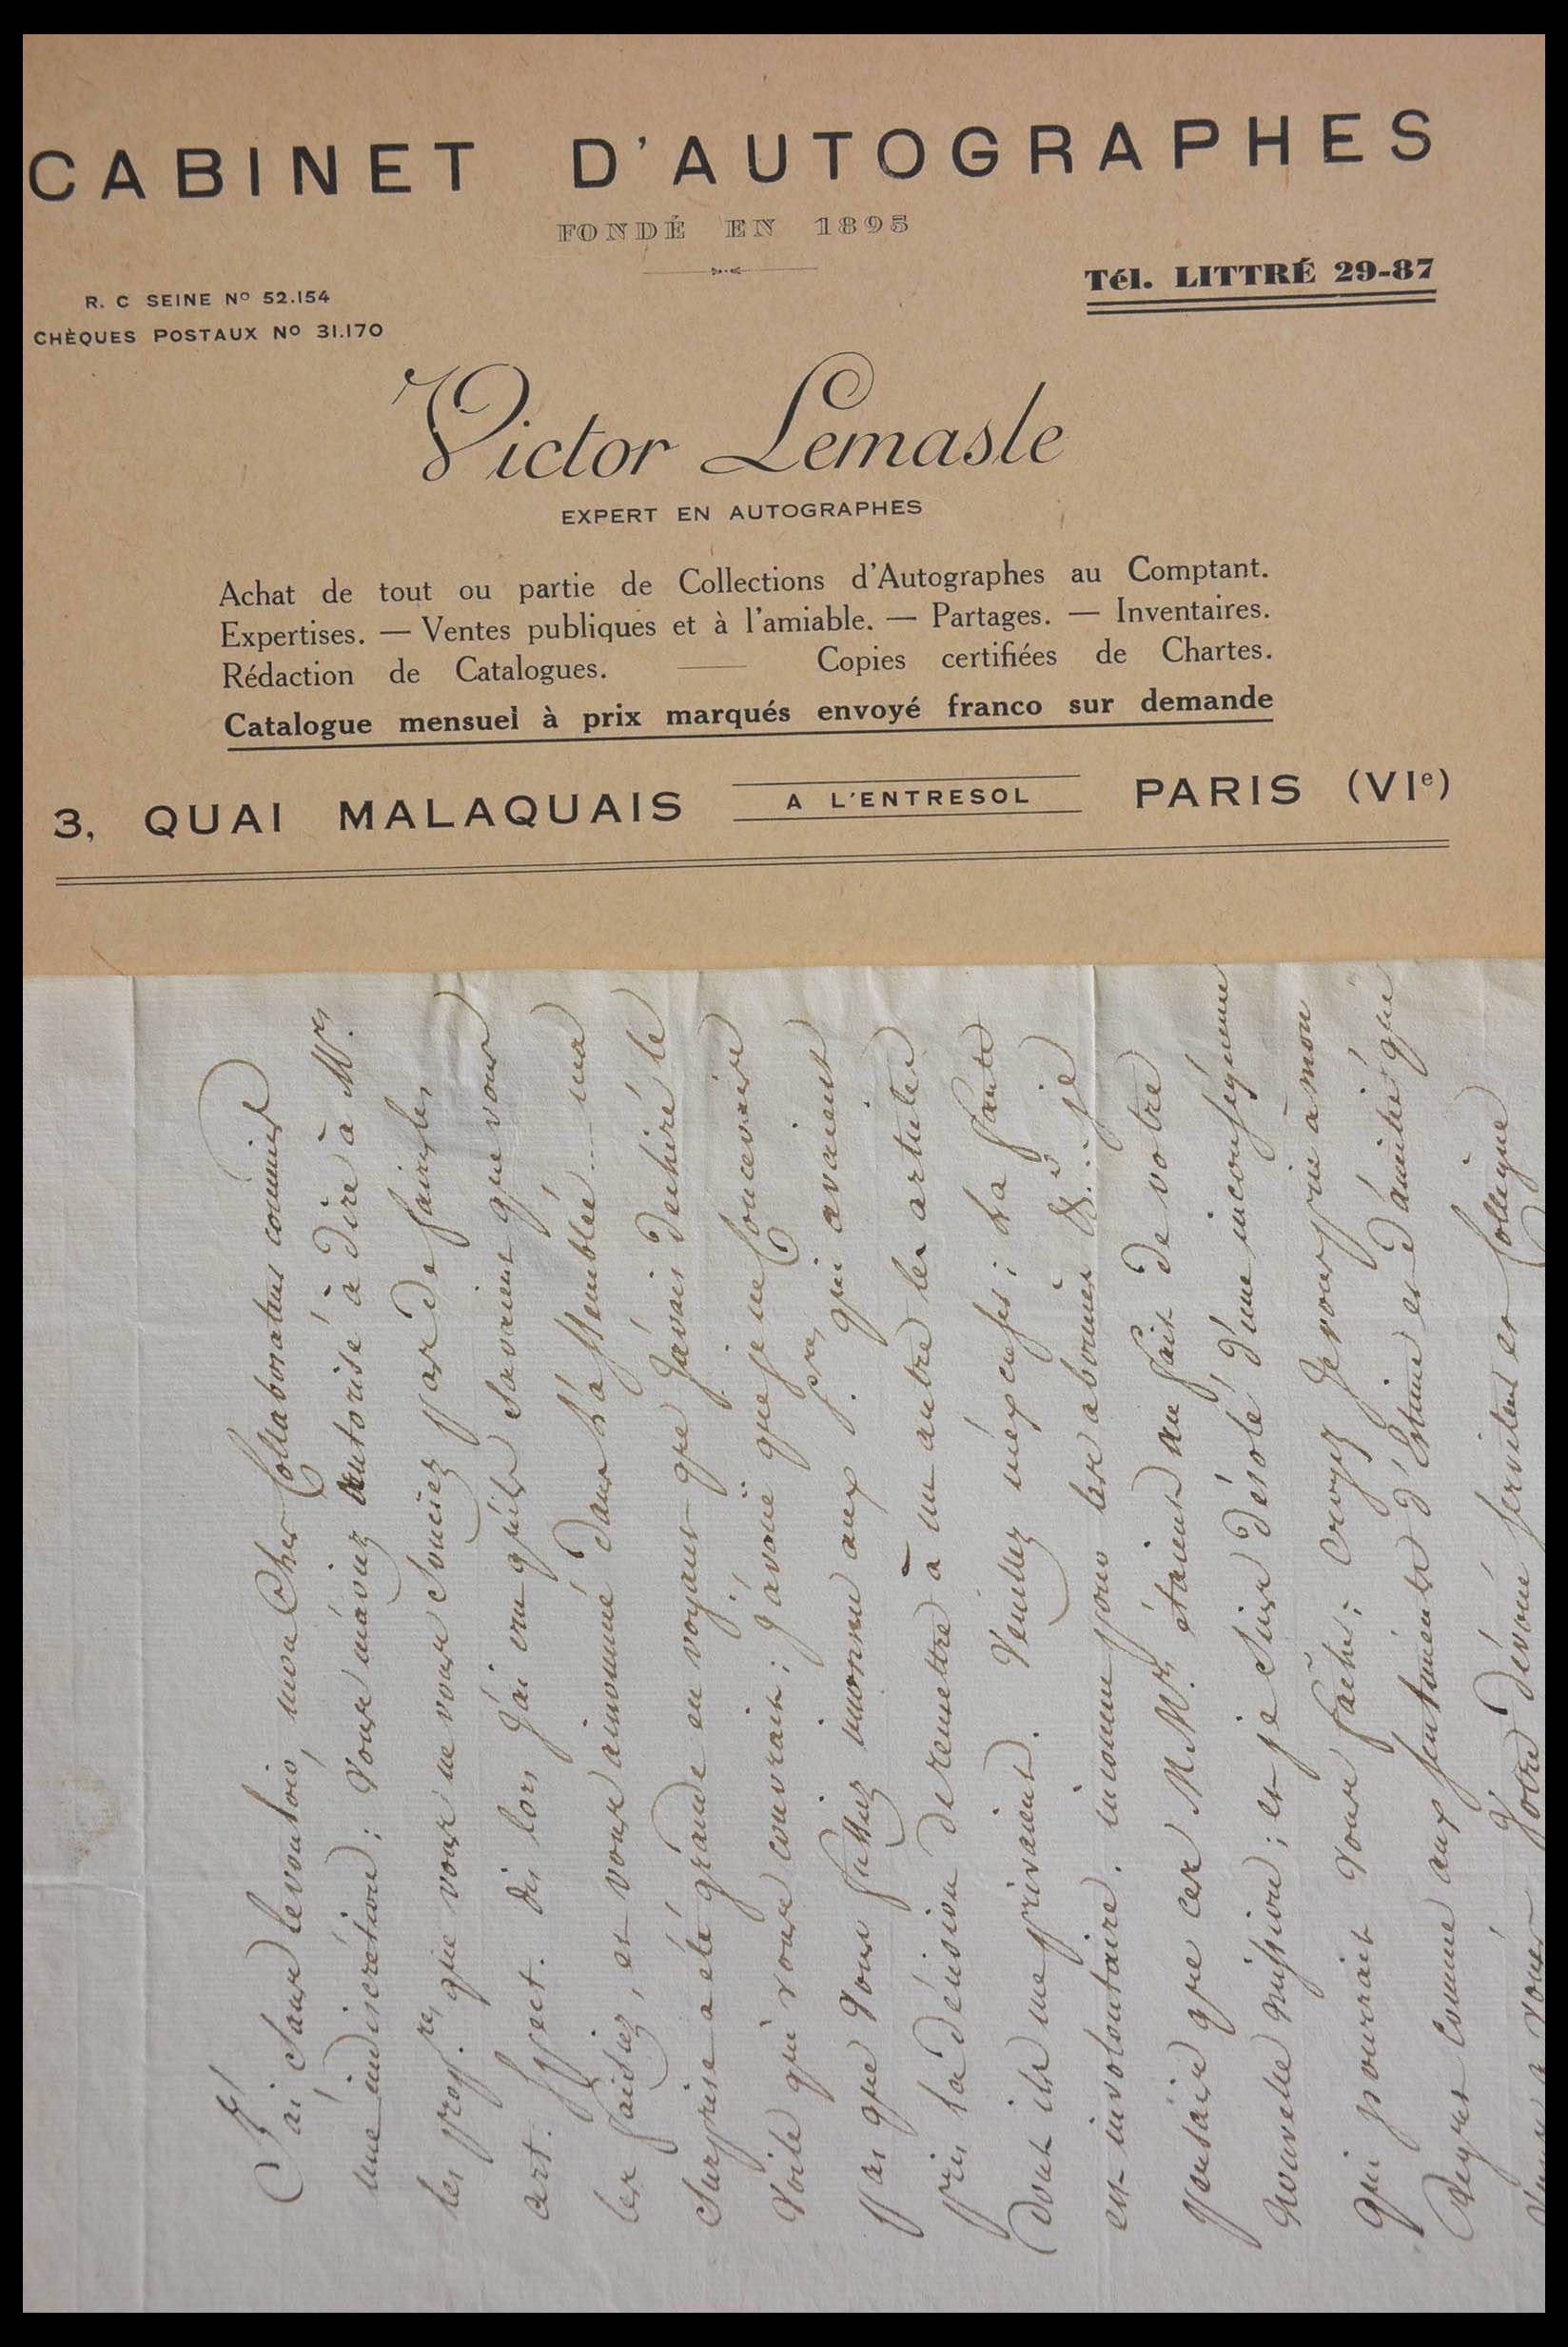 CABINET D'AUTOGRAPHES
FONDÉ EN 1895
R. C SEINE Nº 52.154
CHÈQUES POSTAUX Nº 31.170
Tél. LITTRÉ 29-87
Victor Lemasle
EXPERT EN AUTOGRAPHES
Achat de tout ou partie de Collections d'Autographes au Comptant.
Expertises. — Ventes publiques et à l'amiable. — Partages. — Inventaires.
Rédaction de Catalogues. — Copies certifiées de Chartes.
Catalogue mensuel à prix marqués envoyé franco sur demande
3, QUAI MALAQUAIS A L'ENTRESOL PARIS (VIe)
J'ai sans le vouloir, mon cher Collaborateur commis
une indiscrétion; vous m'aviez autorisé à dire à Mrs
les que vous ne vous souciez pas de faire les
art. dès lors j'ai cru qu'ils savaient que vous
les faisiez, et vous ai nommé dans l'assemblée ... ma
surprise a été grande en voyant que j'avais dechiré le
voile qui vous couvrait; j'avoue que je ne concevais
pas que vous fussiez inconnu aux qui avaient
pris la décision de remettre à un autre les articles
dont ils me privaient. Veuillez m'excuser; la faute
est involontaire. inconnu pour les abonnés &a... je
pensais que ces M.Mrs étaient au fait de votre
nouvelle mission; et je suis désolé d'une inconséquence
qui pourrait vous facher; croyez je vous prie à mon
regret comme aux sentiments d'estime et d'amitié que
vous a voués Votre dévoué serviteur et Collègue